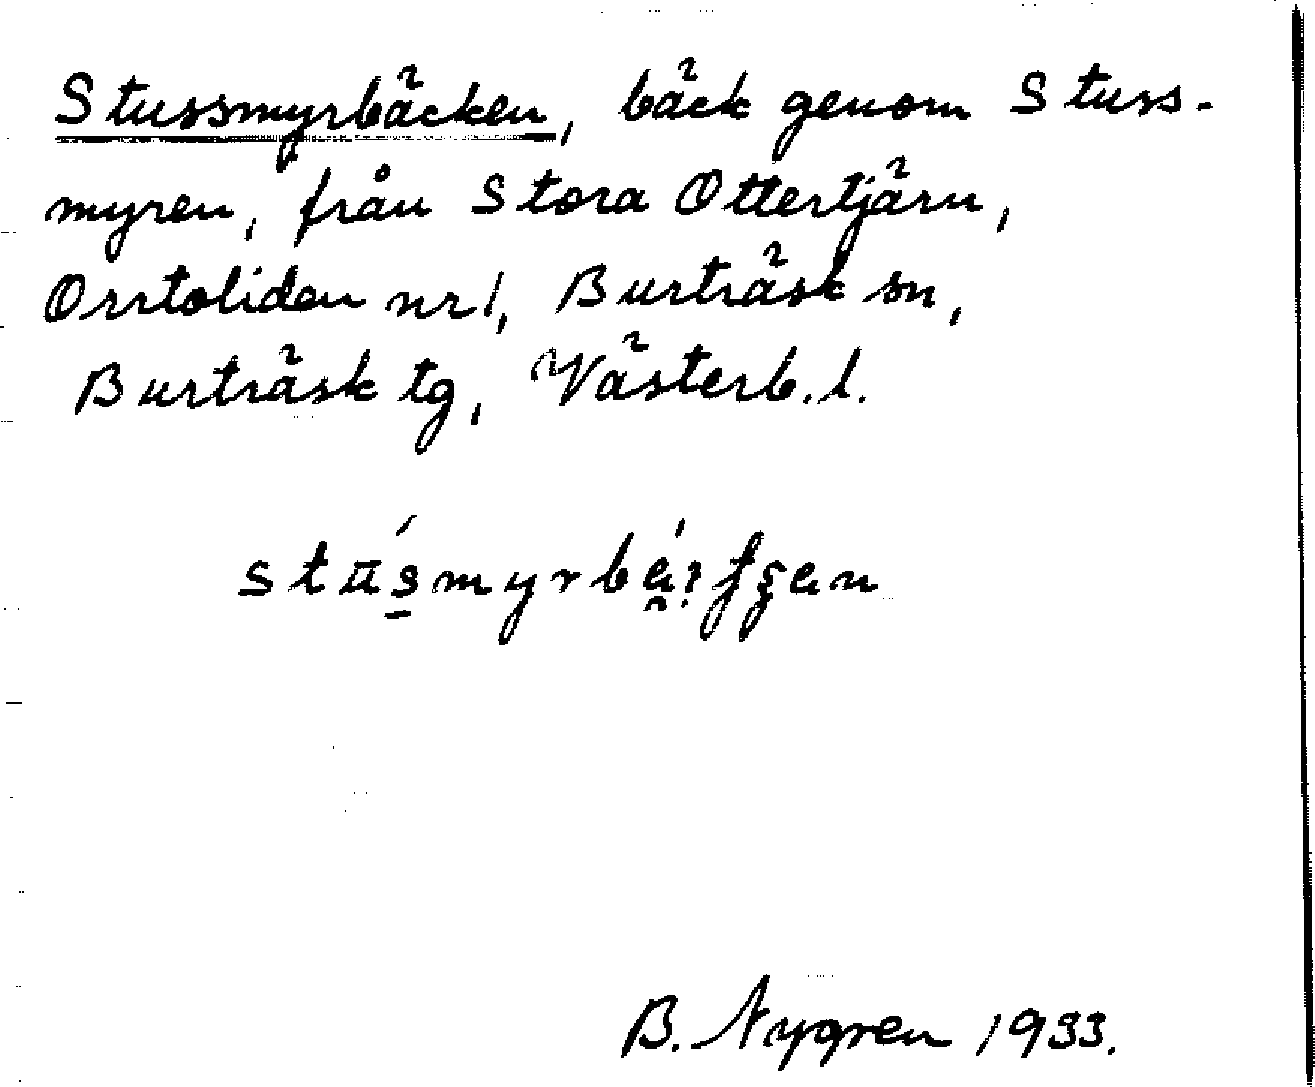 Stussmyrbäcken, bäck genom Stuss-
myren, från Stora Ottertjärn,
Orrtoliden nr 1, Burträsk sn,
Burträsk tg, Västerb. l.
B. Nygren 1933.